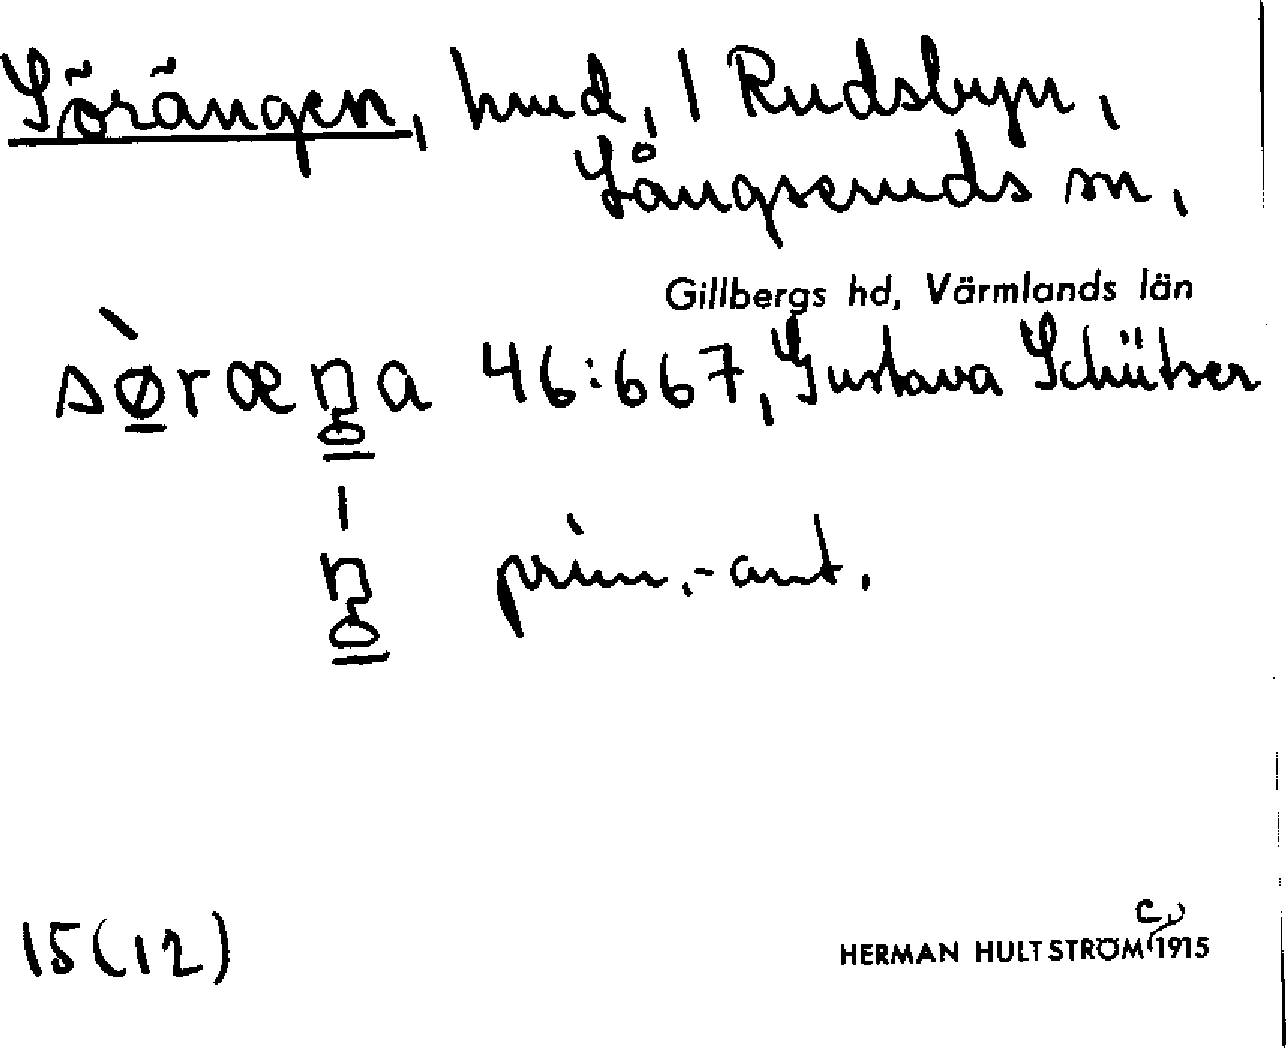 Sörängen, hmd, 1 Rudsbyn,
Långseruds sn,
Gillbergs hd, Värmlands län
sø̀ræŋa 46:667, Gustava Schützer
–
ŋ prim.-ant.
15(12)
c.
HERMAN HULTSTRÖM 1915